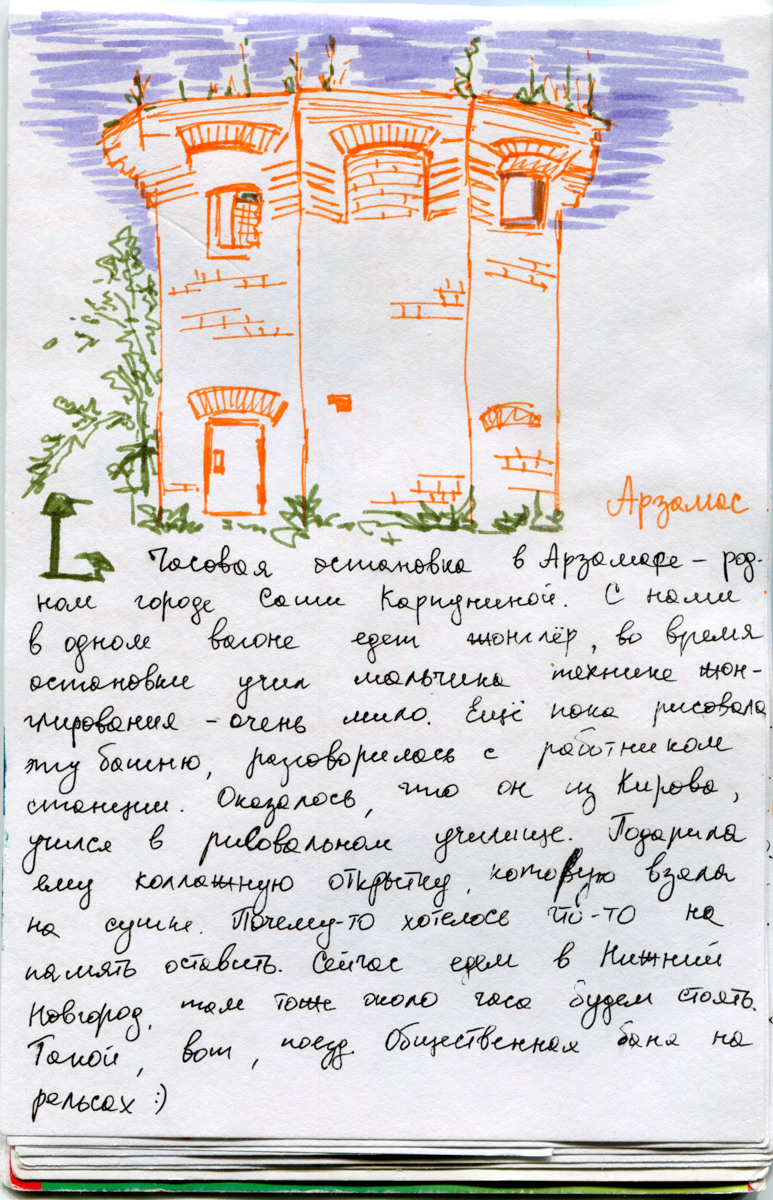 Арзамас
Часовая остановка в Арзамасе – род-
ном городе Саши Карпуниной. С нами
в одном вагоне едет жонглёр, во время
остановки учил мальчика технике жон-
глирования – очень мило. Ещё пока рисовала
эту башню, разговорилась с работником
станции. Оказалось, что он из Кирова,
учился в рисовальном училище. Подарила
ему коллажную открытку, которую взяла
на сушке. Почему-то хотелось что-то на
память оставить. Сейчас едем в Нижний
Новгород, там тоже около часа будем стоять.
Такой, вот, поезд. Общественная баня на
рельсах :)